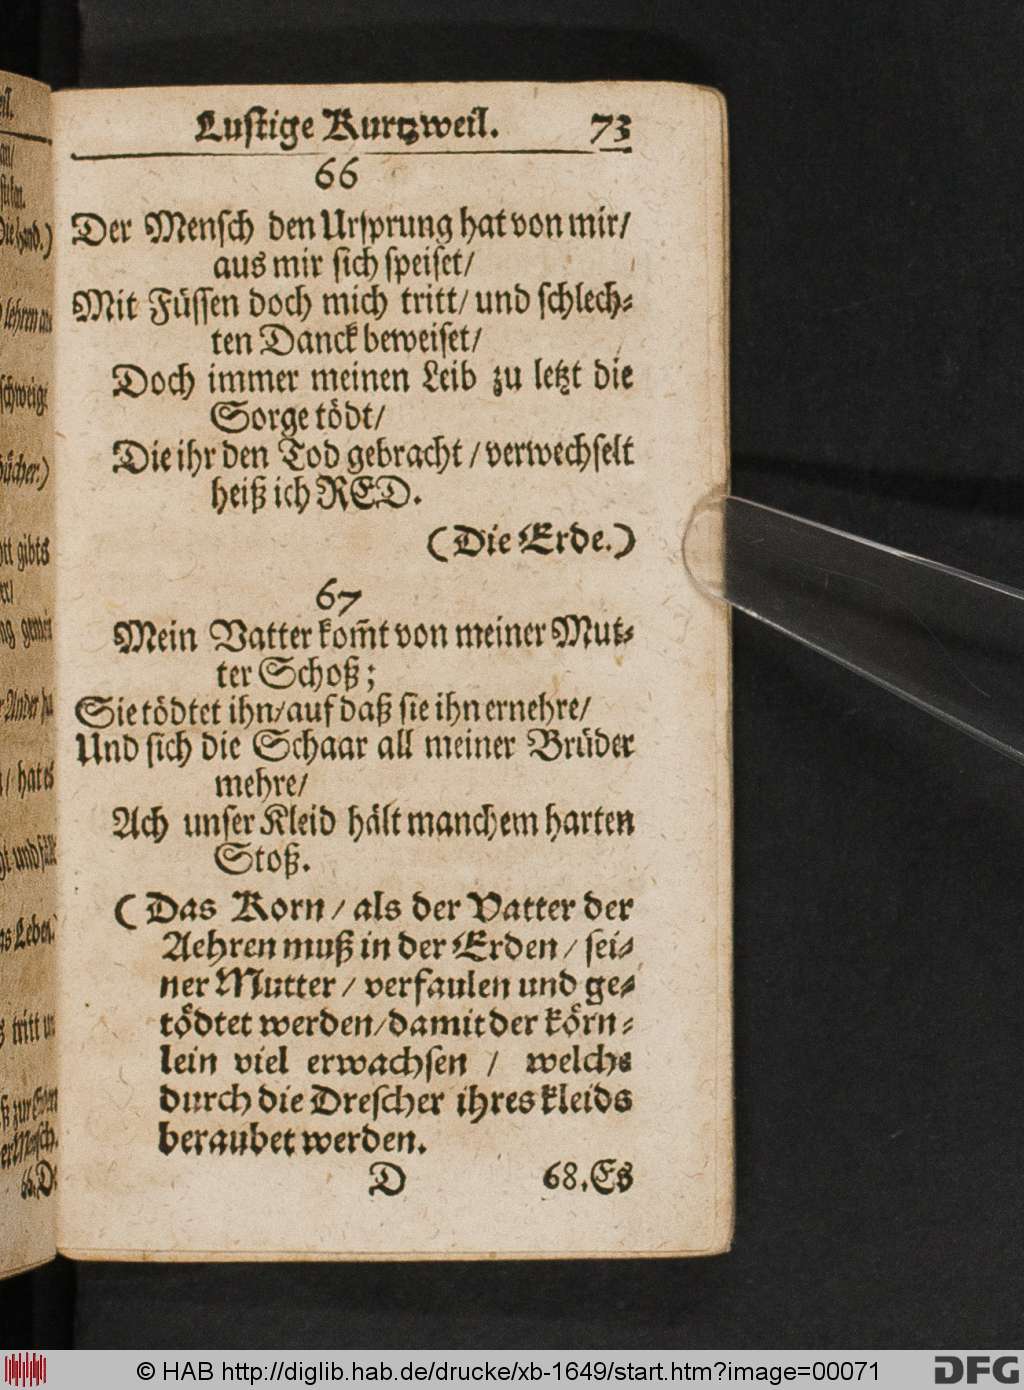 Lustige Kurtzweil. 73
66
Der Mensch den Ursprung hat von mir/
aus mir sich speiset/
Mit Füssen doch mich tritt/ und schlech⸗
ten Danck beweiset/
Doch immer meinen Leib zu letzt die
Sorge tödt/
Die ihr den Tod gebracht / verwechselt
heiß ich RED.
(Die Erde.)
67
Mein Vatter kom̃t von meiner Mut⸗
ter Schoß;
Sie tödtet ihn/auf daß sie ihn ernehre/
Und sich die Schaar all meiner Brüder
mehre/
Ach unser Kleid hält manchem harten
Stoß.
(Das Korn / als der Vatter der
Aehren muß in der Erden / sei⸗
ner Mutter / verfaulen und ge⸗
tödtet werden/damit der körn⸗
lein viel erwachsen / welchs
durch die Drescher ihres kleids
beraubet werden.
D 68. Es
© HAB http://diglib.hab.de/drucke/xb-1649/start.htm?image=00071
DFG